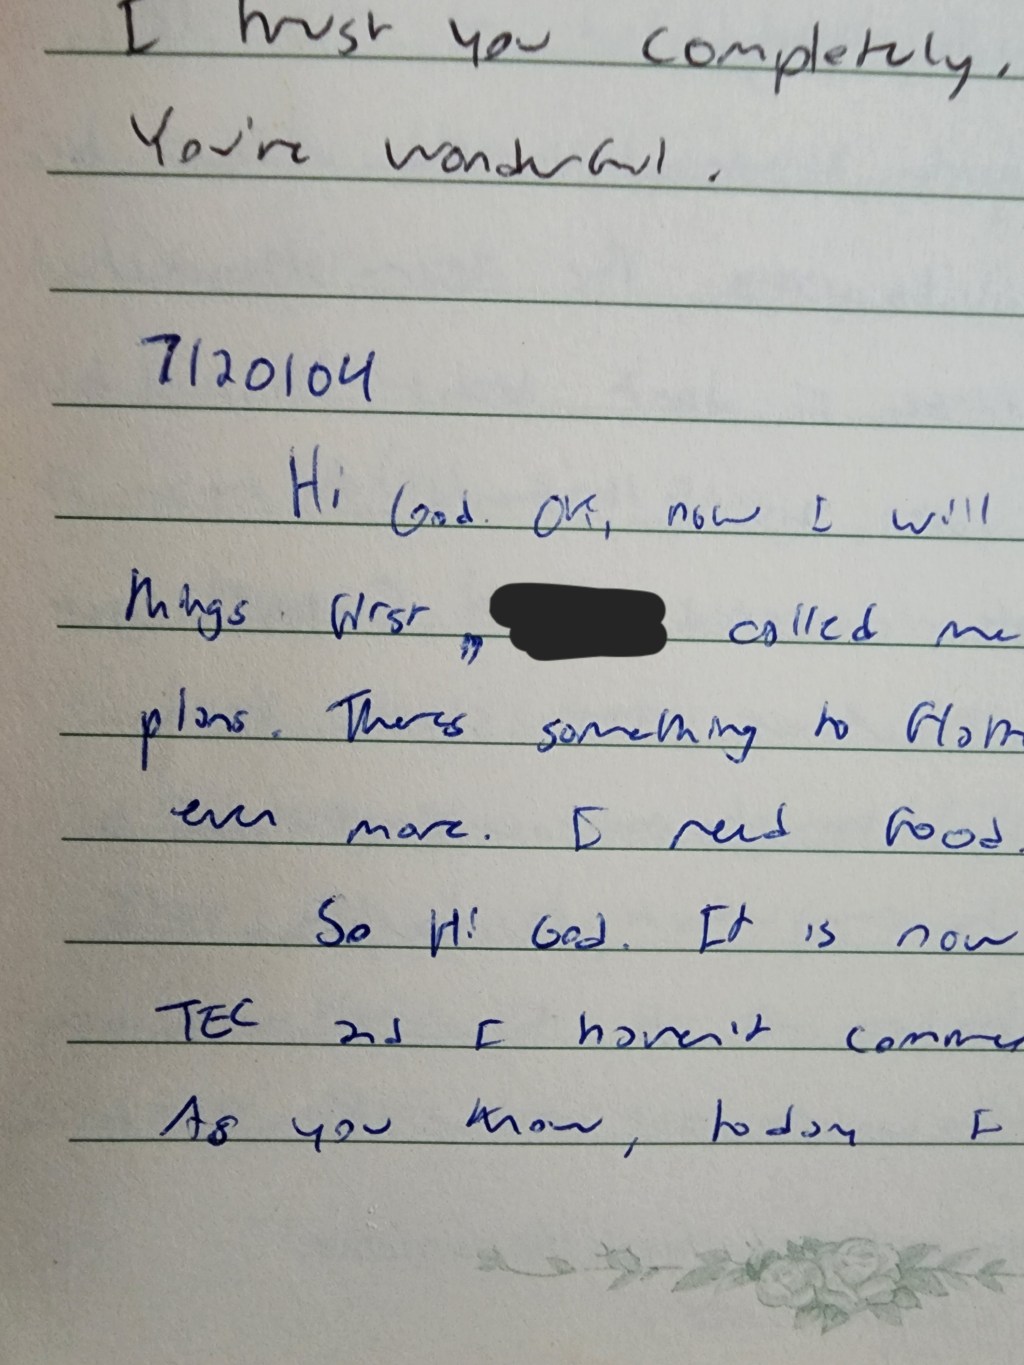 I trust you completely.
You're wonderful.
7/20/04
Hi God. OK, now I will
things. First, called me
plans. Theres something to
even more. I need food.
So Hi God. It is now
TEC and I haven't
As you know, today I